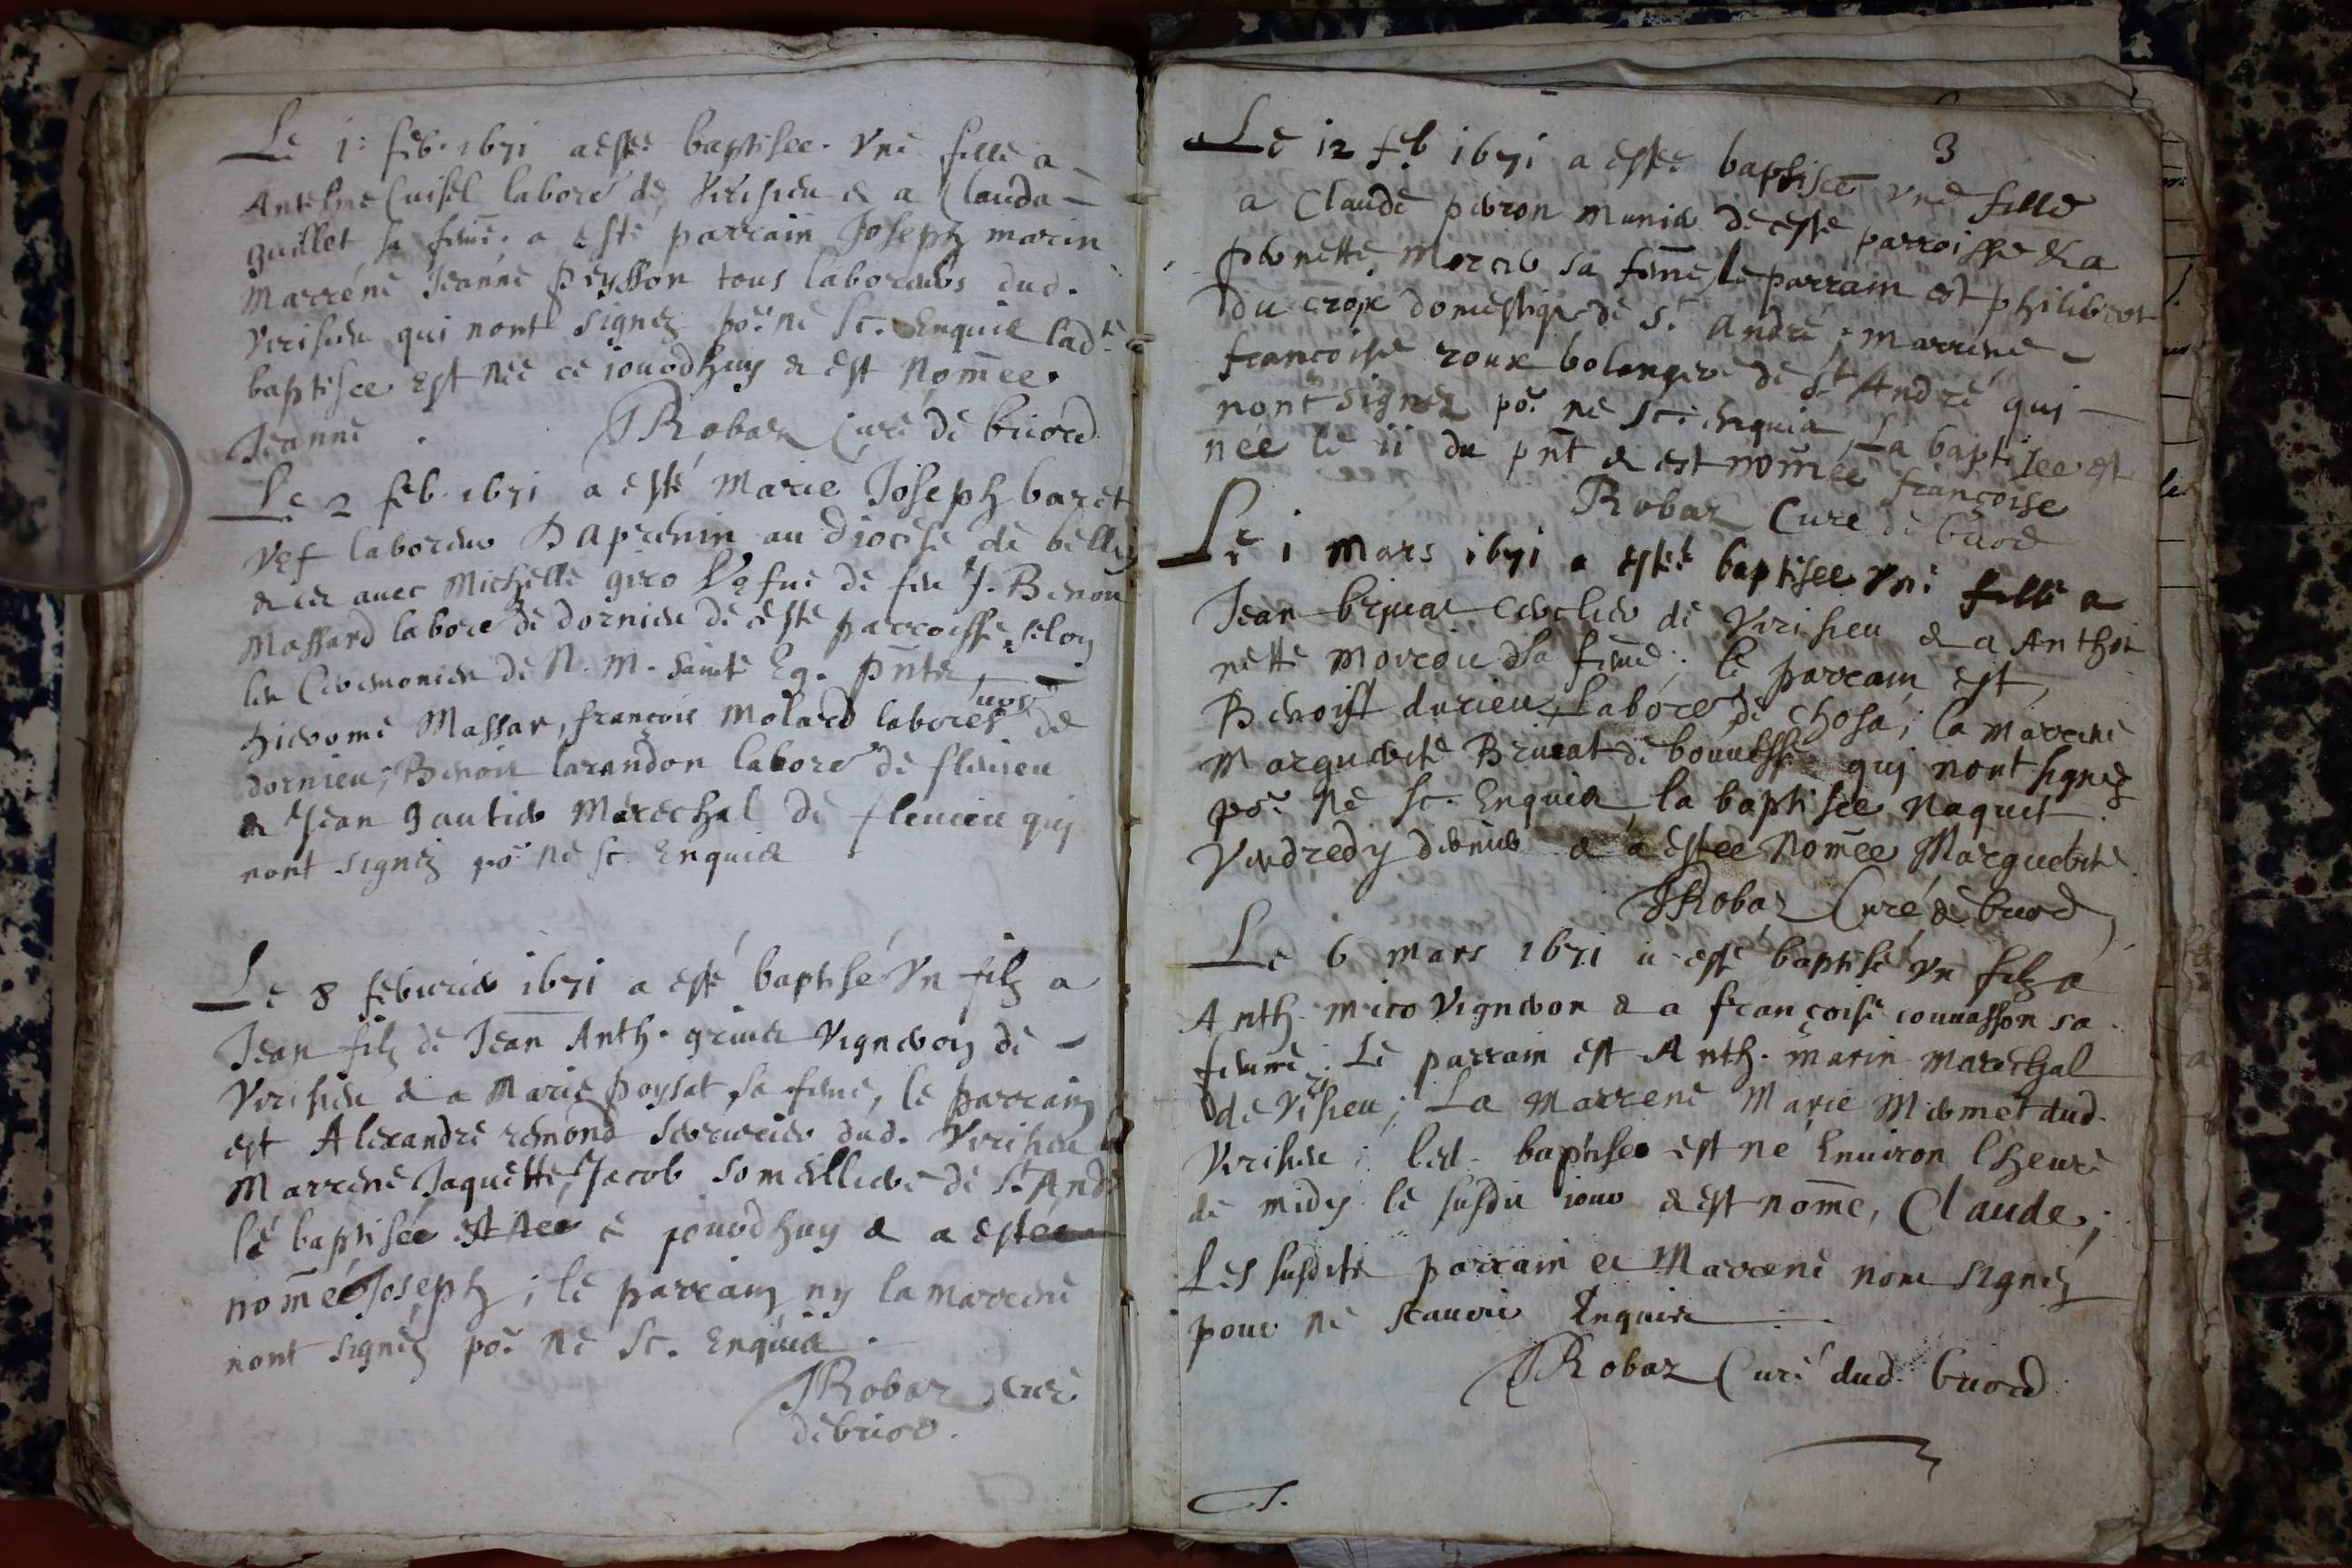 Le 1. feb. 1671 a esté baptisee. Vne fille a
Antelme Cuisel labore de Virisieu & a Clauda
guillet sa feme. a esté parrain Joseph marin
Marrene Jeanne Peysson tous laboreurs dud.
Virisieu qui nont signez po.r ne sc. Enquis lad.te
baptisee est née ce iourdhuy & est Nomee
Jeanne. JRobaz Curé de briord
Le 2 feb. 1671 a esté Marié Joseph baret
Vef laboreur au diocese de belley
avec Michelle giro Vefue de feu J. Benoit
Massard labore de dornieu de ceste parroisse selon
les Ceremonies de N. M. Sainte Eg. pnts
hierome Massar, françois Molard labores de
dornieu; Benoit larandon labore de fleuieu
& Jean gautier Marechal de fleuieu qui
nont signez po.r ne sc. Enquis
Le 8 feburier 1671 a esté baptisé Vn filz a
Jean filz de Jean Anth. Vigneron de
Virisieu & a Marie poysat sa feme, le parrain
est Alexandre remond serrurier dud. Virisieu la
Marrene Jaquette Jacob de St. André
le baptisée est née ce jourdhuy & a estée
nomée Joseph; le parrain ny la marrene
nont signez po.r ne sc. Enquis.
JRobaz curé
de briord.
3
Le 12 feb 1671 a esté baptisée vne fille
a Claude peron munier de ceste parroisse & a
sa feme, le parrain est philibert
du croix domestique de St. André; marrene
francoise roux bolangere de St André qui
nont signez po.r ne sc. enquis. La baptisee est
née le 11 du pnt & est nomée françoise
Robaz Curé de briord
Le 1 Mars 1671 a estéé baptisee Vne fille a
Jean de Virisieu & a Anthoi
nette sa feme; le parrain est
Benoist durieu, labore de Chosa; la Marrene
Marguerite Brueat de bouuesse qui nont signez
po.r ne sc. Enquis, la baptisee Naquit
Vendredy dernier & a estee Nomée Marguerite.
JRobaz Curé de briord
Le 6 mars 1671 a esté baptisé Vn filz a
Anth. mico Vigneron & a françoise couuasson sa
femme. Le parrain est Anth. marin marechal
de Virisieu; La Marrene Marie Mermet dud.
Virisieu; led. baptisee est né Enuiron lheure
de midy le susdit iour & est nomé, Claude;
Les susdits parrain et Marrene nont signez
pour ne scauoir Enquis
JRobaz Curé dud. briord